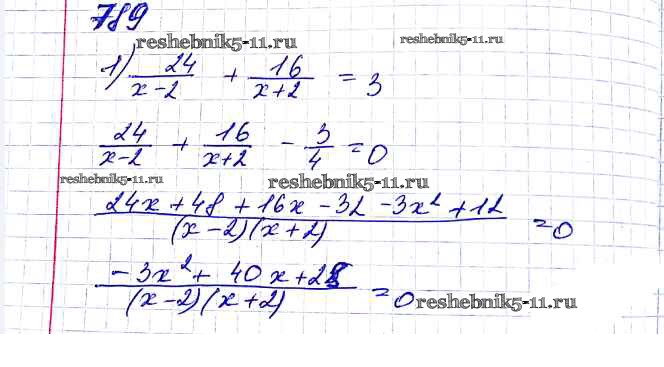 789
reshebnik5-11.ru reshebnik5-11.ru
1) 24/(x-2) + 16/(x+2) = 3
24/(x-2) + 16/(x+2) - 3/4 = 0
reshebnik5-11.ru reshebnik5-11.ru
(24x + 48 + 16x - 32 - 3x² + 12)/((x-2)(x+2)) = 0
(-3x² + 40x + 28)/((x-2)(x+2)) = 0
reshebnik5-11.ru